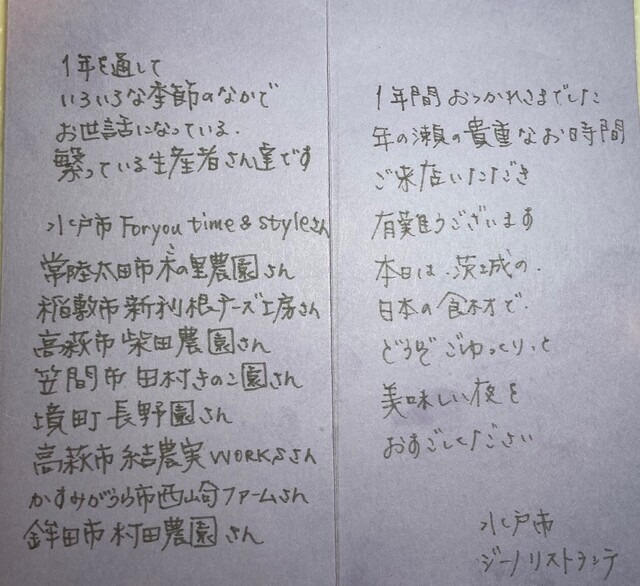 1年を通して
いろいろな季節のなかで
お世話になっている.
繋っている生産者さん達です
水戸市 Foryou time & styleさん
常陸太田市 木の里農園さん
稲敷市 新利根チーズ工房さん
高萩市 柴田農園さん
笠間市 田村きのこ園さん
境町 長野園さん
高萩市 結農実 WORKSさん
かすみがうら市西山奇ファームさん
鉾田市 村田農園さん
1年間 おつかれさまでした
年の瀬の貴重なお時間
ご来店いただき
有難うございます
本日は.茨城の.
日本の食材で.
どうぞごゆっくりと
美味しい夜を
おすごしください
水戸市
ジーノリストランテ